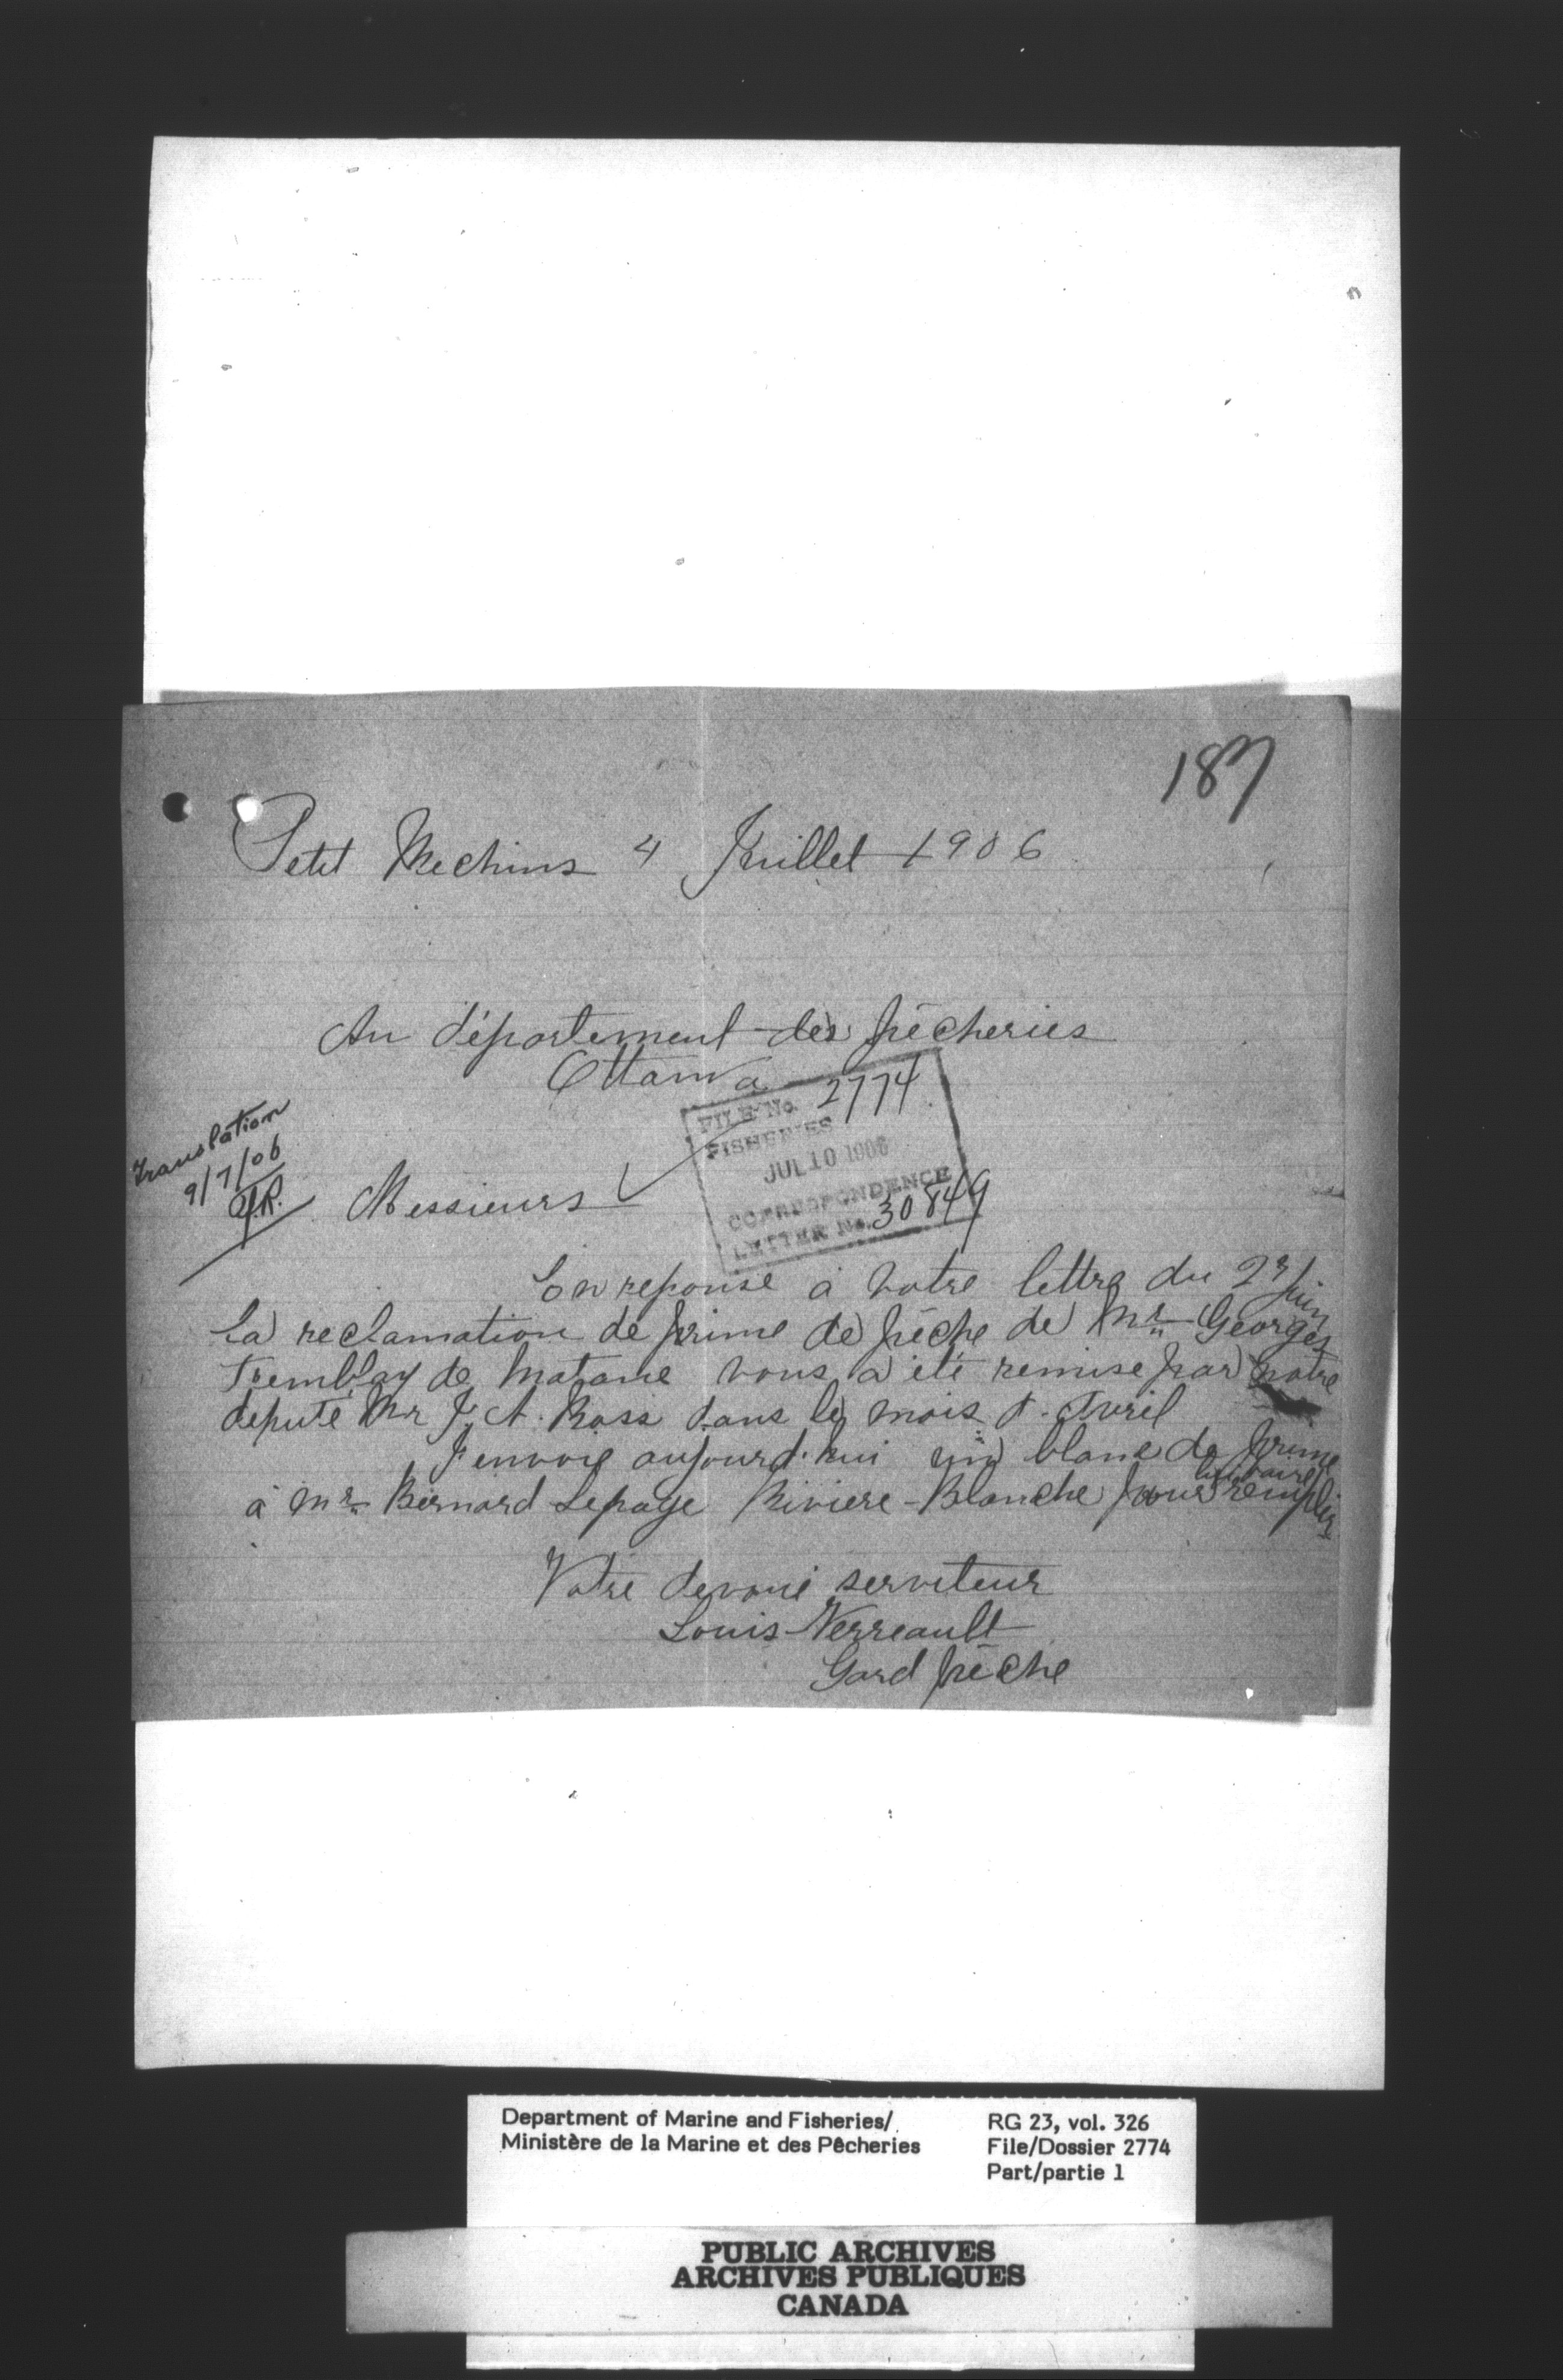 187
Petit Mechins 4 Juillet 1906
Au département des pêcheries
Ottawa
FILE No. 2774
FISHERIES
JUL 10 1906
CORRESPONDENCE
LETTER No. 30849
Translation
9/7/06
Messieurs
En reponse a votre lettre du 2 juin
la reclamation de prime de pêche de Mr Georges
Tremblay de Matane vous a été remise par notre
deputé Mr J. A. Ross dans le mois d. Avril
J envoie aujourd. hui un blanc de prime
à Mr Bernard Lepage Riviere-Blanche pour lui faire remplir
Votre devoué serviteur
Louis Verreault
Gard pêche
Department of Marine and Fisheries/
Ministère de la Marine et des Pêcheries
RG 23, vol. 326
File/Dossier 2774
Part/partie 1
PUBLIC ARCHIVES
ARCHIVES PUBLIQUES
CANADA